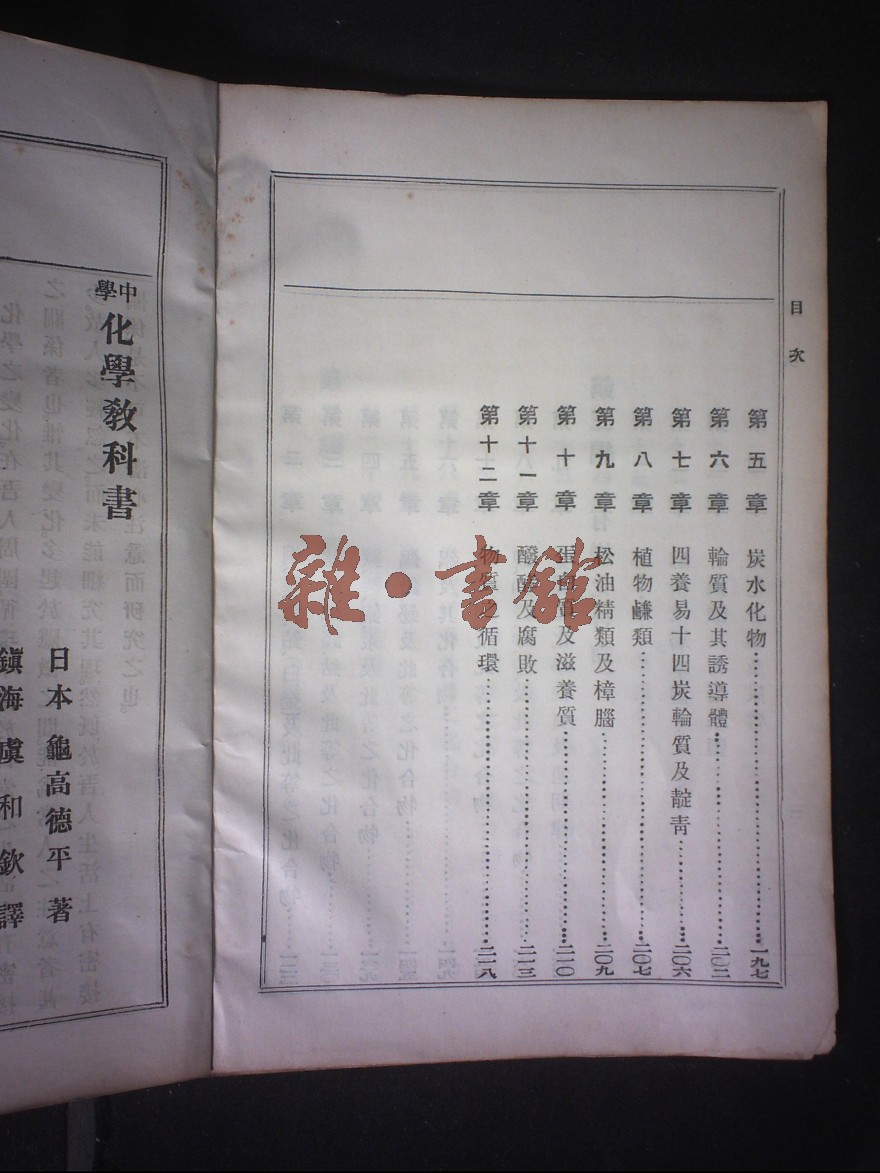 目次
第五章 炭水化物……一九七
第六章 輪質及其誘導體……二〇二
第七章 四養易十四炭輪質及靛靑……二〇六
第八章 植物鹻類……二〇七
第九章 松油精類及樟腦……二〇九
第十章 蛋白質及滋養質……二一〇
第十一章 醱酵及腐敗……二一三
第十二章 物質之循環……二一八
雜·書館
中學
化學敎科書
日本龜高德平著
鎭海虞和欽譯